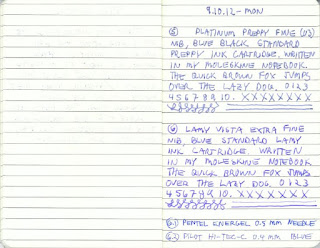 9.10.12 - MON
⑤ PLATINUM PREPPY FINE (03)
NIB, BLUE BLACK STANDARD
PREPPY INK CARTRIDGE. WRITTEN
IN MY MOLESKINE NOTEBOOK.
THE QUICK BROWN FOX JUMPS
OVER THE LAZY DOG. 0123
45678910. XXXXXXX
⑥ LAMY VISTA EXTRA FINE
NIB, BLUE STANDARD LAMY
INK CARTRIDGE. WRITTEN
IN MY MOLESKINE NOTEBOOK
THE QUICK BROWN FOX JUMPS
OVER THE LAZY DOG. 0123
45678910. XXXXXXX
6.1 PENTEL ENERGEL 0.5 MM NEEDLE
6.2 PILOT HI-TEC-C 0.4 MM BLUE